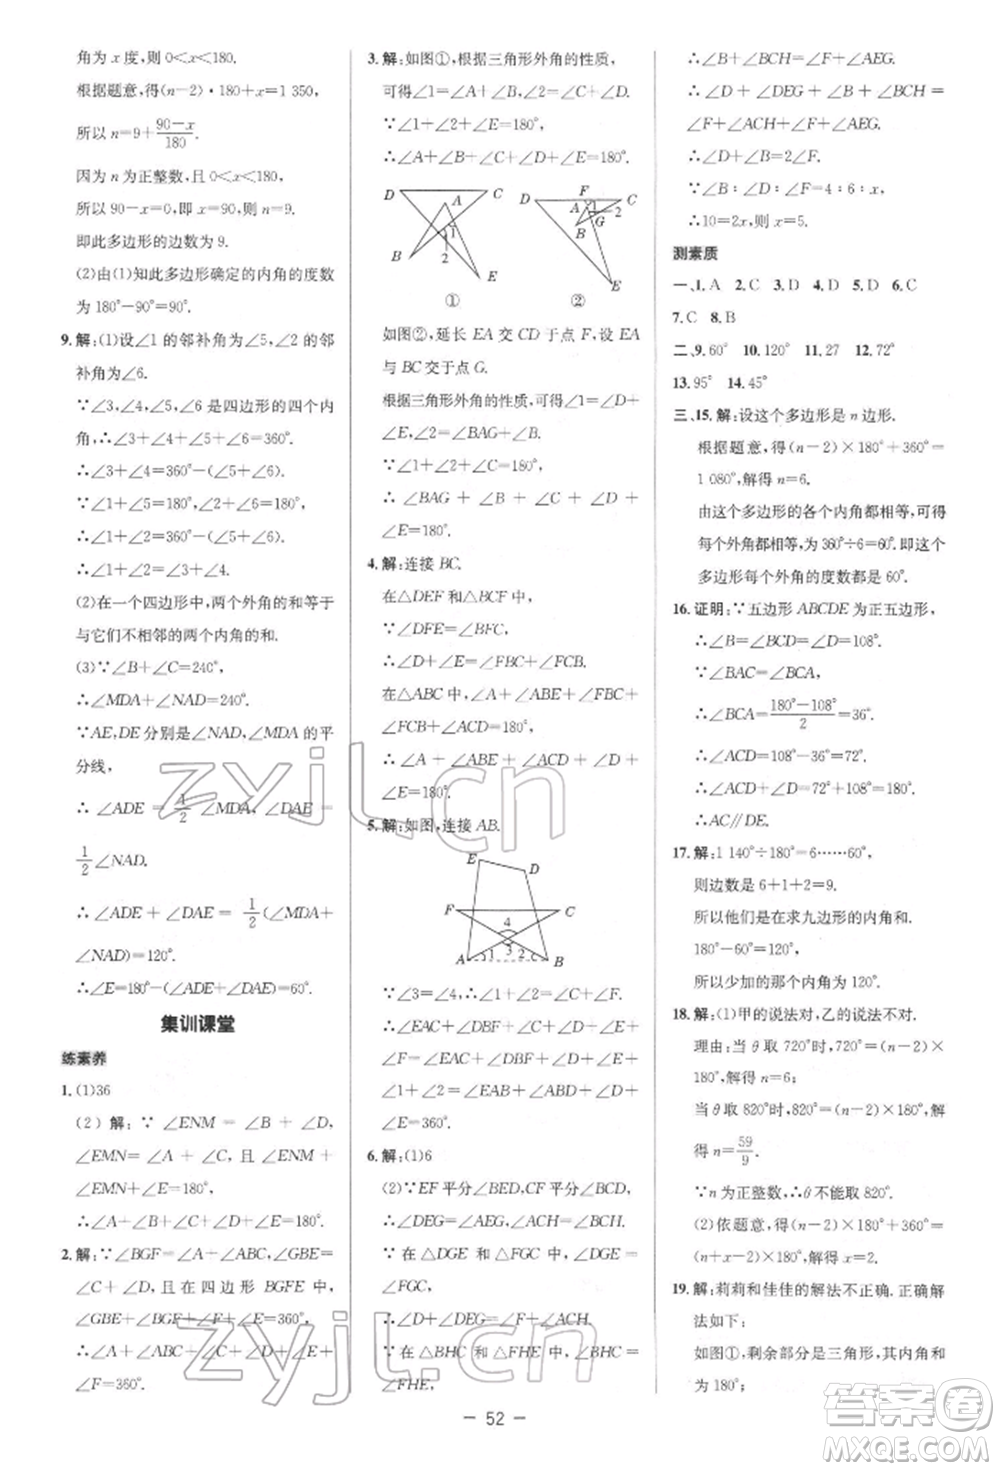 角为 x 度,则 0<x<180.
根据题意,得(n-2)·180+x=1 350,
所以 n=9+90-x/180.
因为 n 为正整数,且 0<x<180,
所以 90-x=0,即 x=90,n=9.
即此多边形的边数为 9.
(2)由(1)知此多边形确定的内角的度数
为 180°-90°=90°.
9.解:(1)设∠1 的邻补角为∠5,∠2 的邻
补角为∠6.
∵∠3,∠4,∠5,∠6 是四边形的四个内
角,∴∠3+∠4+∠5+∠6=360°.
∴∠3+∠4=360°-(∠5+∠6).
∵∠1+∠5=180°,∠2+∠6=180°,
∴∠1+∠2=360°-(∠5+∠6).
∴∠1+∠2=∠3+∠4.
(2)在一个四边形中,两个外角的和等于
与它们不相邻的两个内角的和.
(3)∵∠B+∠C=240°,
∴∠MDA+∠NAD=240°.
∵AE,DE分别是∠NAD,∠MDA 的平
分线,
∴ ∠ADE = 1/2 ∠MDA, ∠DAE =
1/2 ∠NAD.
∴ ∠ADE + ∠DAE = 1/2 (∠MDA+
∠NAD)=120°.
∴∠E=180°-(∠ADE+∠DAE)=60°.
集训课堂
练素养
1.(1)36
(2) 解: ∵ ∠ENM = ∠B + ∠D,
∠EMN=∠A+∠C,且 ∠ENM+
∠EMN+∠E=180°,
∴∠A+∠B+∠C+∠D+∠E=180°.
2.解:∵∠BGF=∠A+∠ABG,∠GBE=
∠C+∠D,且在四边形 BGFE 中,
∠GBE+∠BGF+∠GFE+∠E=360°,
∴∠A+∠ABC+∠C+∠D+∠E+
∠F=360°.
3.解:如图①,根据三角形外角的性质,
可得∠1=∠A+∠B,∠2=∠C+∠D.
∵∠1+∠2+∠E=180°,
∴ ∠A + ∠B + ∠C + ∠D +
∠E=180°.
D C A 1 B 2 E
D F C A 1 2 B G E
① ②
如图②,延长 EA 交 CD 于点 F,设 EA
与 BC 交于点 G.
根据三角形外角的性质,可得∠1=∠D+
∠E,∠2=∠BAG+∠B.
∵∠1+∠2+∠C=180°,
∴ ∠BAG + ∠B + ∠C + ∠D +
∠E=180°.
4.解:连接 BC.
在△DEF 和△BCF 中,
∵∠DFE=∠BFC,
∴∠D+∠E=∠FBC+∠FCB.
在△ABC 中,∠A+∠ABE+∠FBC+
∠FCB+∠ACD=180°,
∴ ∠A + ∠ABE + ∠ACD + ∠D +
∠E=180°.
5.解:如图,连接 AB.
E D F C 4 3 1 2 A B
∵∠3=∠4,∴∠1+∠2=∠C+∠F.
∴ ∠EAC + ∠DBF + ∠C + ∠D +
∠E + ∠F = ∠EAC + ∠DBF +
∠1+∠2+∠E+∠D=∠EAB+∠DBA+
∠D+∠E=360°.
6.解:(1)6
(2)∵EF 平分∠BED,CF 平分∠BCD,
∴∠DEG=∠AEG,∠ACH=∠BCH.
∵ 在 △DGE 和 △FGC 中,∠DGE =
∠FGC,
∴∠D+∠DEG=∠F+∠ACH.
∵ 在△BHC 和△FHE 中,∠BHC=
∠FHE,
∴∠B+∠BCH=∠F+∠AEG.
∴ ∠D + ∠DEG + ∠B + ∠BCH =
∠F+∠ACH+∠F+∠AEG.
∴∠D+∠B=2∠F.
∵∠B∶∠D∶∠F=4∶6∶x,
∴10=2x,则 x=5.
测素质
一、1. A 2. C 3. D 4. D 5. D 6. C
7. C 8. B
二、9. 60° 10. 120° 11. 27 12. 72°
13. 95° 14. 45°
三、15.解:设这个多边形是 n 边形.
根据题意,得(n-2)×180°+360°=
1 080°,解得 n=6.
由这个多边形的各个内角都相等,可得
每个外角都相等,为 360°÷6=60°.即这个
多边形每个外角的度数都是 60°.
16.证明:∵五边形 ABCDE 为正五边形,
∴∠B=∠BCD=∠D=108°.
∵∠BAC=∠BCA,
∴∠BCA=180°-108°/2=36°.
∴∠ACD=108°-36°=72°.
∴∠ACD+∠D=180°.
∴AC∥DE.
17.解:1 140°÷180°=6……60°,
则边数是 6+1+2=9.
所以他们是在求九边形的内角和.
180°-60°=120°,
所以少加的那个内角为 120°.
18.解:(1)甲的说法对,乙的说法不对.
理由:当θ取 720°时,720°=(n-2)×
180°,解得 n=6;
当θ取 820°时,820°=(n-2)×180°,解
得 n=59/9.
∵n 为正整数,∴θ不能取 820°.
(2)依题意,得(n-2)×180°+360°=
(n+x-2)×180°,解得 x=2.
19.解:莉莉和佳佳的解法不正确.正确解
法如下:
如图①,剩余部分是三角形,其内角和
为 180°;
- 52 -
zyjl.cn
zyjl.cn
答案卷
MXQE.COM